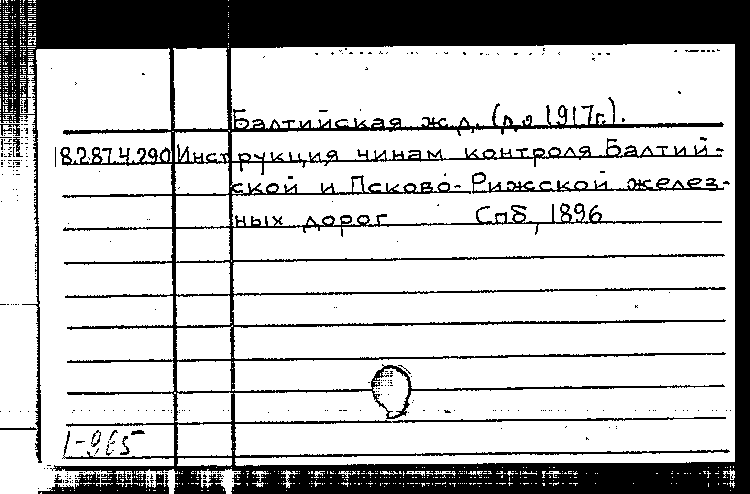 Балтийская ж.д. (до 1917г.).
18.287.4.290 Инструкция чинам контроля Балтий-
ской и Псково-Рижской желез-
ных дорог Спб, 1896
1-965